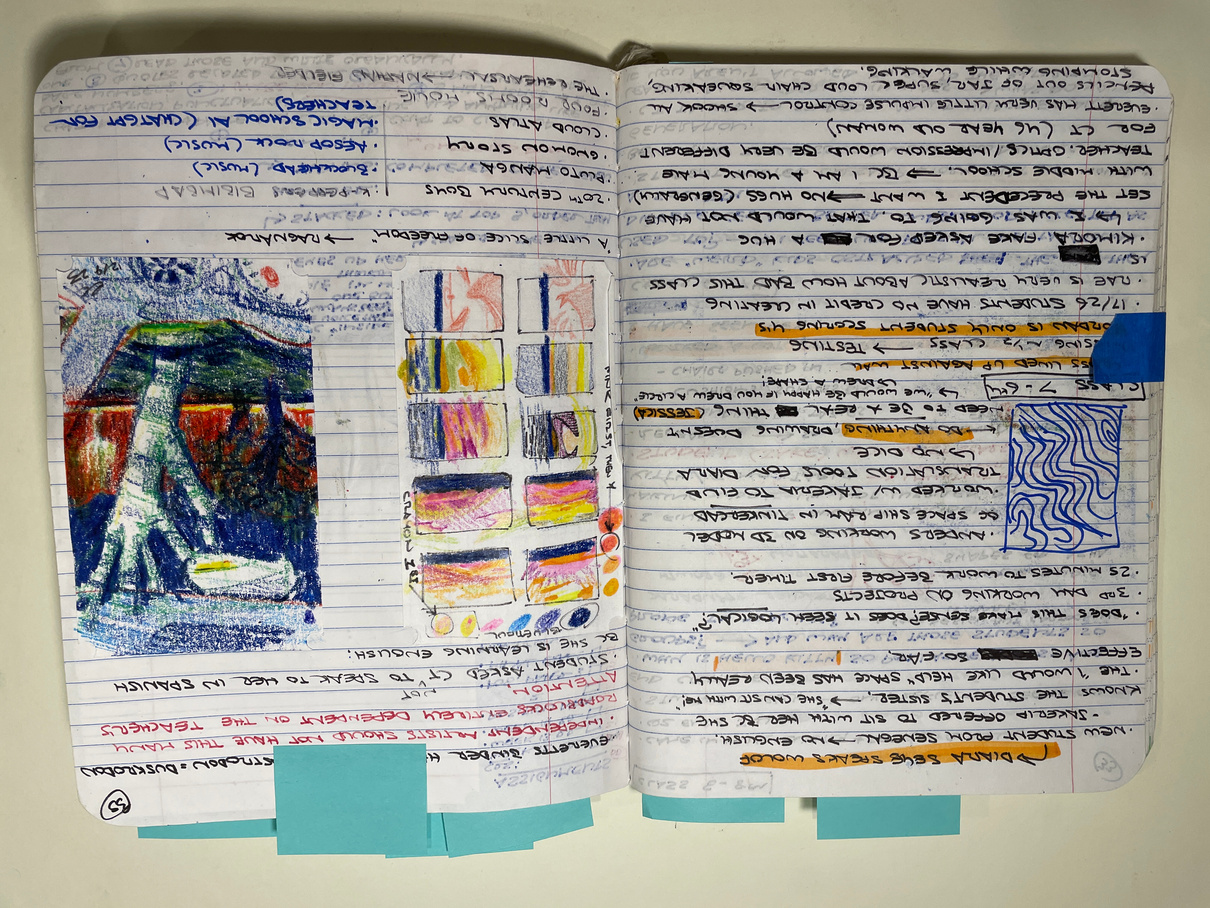 DIARA SEYE SPEAKS WOLOF
· NEW STUDENT FROM SENEGAL → NO ENGLISH.
- JAKERIA OFFERED TO SIT WITH HER BC SHE
KNOWS THE STUDENT'S SISTER. → "SHE CAN SIT WITH ME!"
· THE "I WOULD LIKE HELP" SPACE HAS BEEN REALLY
EFFECTIVE SO FAR.
· "DOES THIS MAKE SENSE? DOES IT SEEM LOGICAL?"
· 3RD DAY WORKING ON PROJECTS
· 25 MINUTES TO WORK BEFORE FIRST TIMER.
· ANDERS WORKING ON 3D MODEL
OF SPACE SHIP RAM IN TINKERCAD
· WORKED W/ JAKERIA TO FIND
TRANSLATION TOOLS FOR DIARA
↳ AND DICE
← DO ANYTHING, DRAWING DOESN'T
NEED TO BE A REAL THING (JESSICA)
↳ "WE WOULD BE HAPPY IF YOU DREW A CIRCLE."
↳ DREW A CHAIR!
CLASS 7-64
LINED UP AGAINST WALL
~1/2 CLASS → TESTING
IS ONLY STUDENT SCORING 4'S
· 17/26 STUDENTS HAVE NO CREDIT IN CLEATING
· RAE IS VERY REALISTIC ABOUT HOW BAD THIS CLASS
IS
· KIMORA FAKE ASKED FOR A HUG
↳ I WAS GOING TO THAT WOULD NOT HAVE
SET THE PRECEDENT I WANT → NO HUGS (GENERALLY)
WITH MIDDLE SCHOOL. → BC I AM A YOUNG MALE
TEACHER. OPTICS / IMPRESSION WOULD BE VERY DIFFERENT
FOR CT (46 YEAR OLD WOMAN)
· EVERETT HAS VERY LITTLE IMPULSE CONTROL → SHOOK ALL
PENCILS OUT OF JAR, SUPER LOUD CHAIR SQUEAKING
STOMPING WHILE WALKING.
53
· EVERETTS BINDER
· INDEPENDENT ARTISTS SHOULD NOT HAVE THIS MANY
ROADBLOCKS ENTIRELY DEPENDENT ON THE TEACHERS
ATTENTION.
· STUDENT ASKED CT NOT TO SPEAK TO HER IN SPANISH
BC SHE IS LEARNING ENGLISH!
PINK FIRST THEN Y
2/9.25
· "A LITTLE SLICE OF FREEDOM" → RAGNAROK
· 20TH CENTURY BOYS
· PLUTO MANGA
· GNOMON STORY
· CLOUD ATLAS
· FOUR ROOMS MOVIE
· THE REHEARSAL → NATHAN FIELDER
· BLOCKHEAD (MUSIC)
· AESOP ROCK (MUSIC)
· MAGIC SCHOOL AI (CHATGPT FOR
TEACHERS)